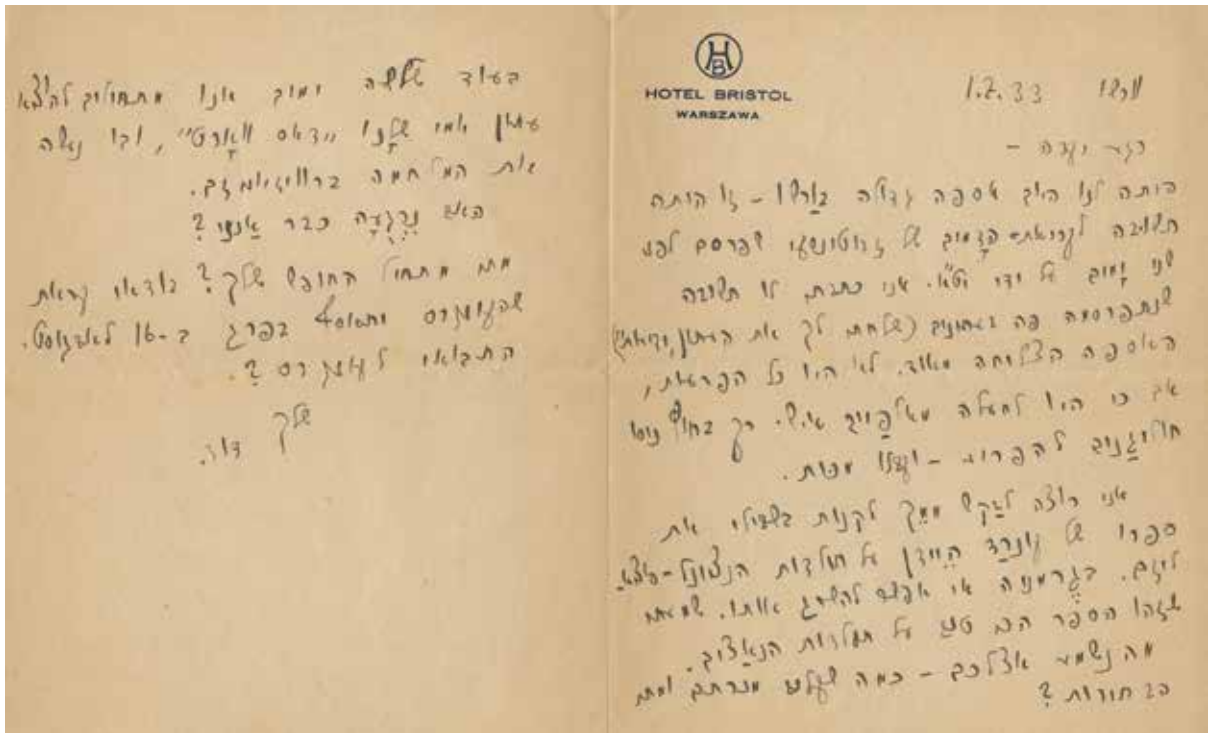 HB
HOTEL BRISTOL
WARSZAWA
ורשו 1.7.33
רגע יקרה –
היתה לנו היום אספה גדולה בוַרשו – זו היתה
תשובה לקריאת-הדָמים של ז'בוטינסקי שפרסם לפני
שני ימים על ידי יט"א. אני כתבתי לו תשובה
שנתפרסמה פה בעתונים (שלחתי לך את העתון,
האספה הצליחה מאוד. לא היו כל הפרעות,
אם כי היו למעלה מאלפַים איש. רק בחוץ ניסו
חוליגַנים להפריע – וקבלו מכות.
אני רוצה לבַקש ממֵך לקנות בשבילי את
ספרו של קונרַד הֵיידן על תולדות הנציונל-סוציאַ
ליזם. בגֶרמניה אי אפשר להשיג אותו. שמעתי
שזהו הספר הכי טוב על תולדות הנאַצים.
מה נשמע אצלכם – כמה שקלים מכרתם ומתי
הבחירות?
בעוד שלשה ימים אנו מתחילים להוציא
עתון יומי שלנו "דאס וואָרט", ובו נעשה
את המלחמה ברוויזיוניזם.
האם נרגעה כבר אַנצי?
מתי מתחיל החופש שלך? בודאי קראת
שהקונגרס יתאסף בפרג ב-16 לאבגוסט.
התבואי לקונגרס?
שלך
דוד.